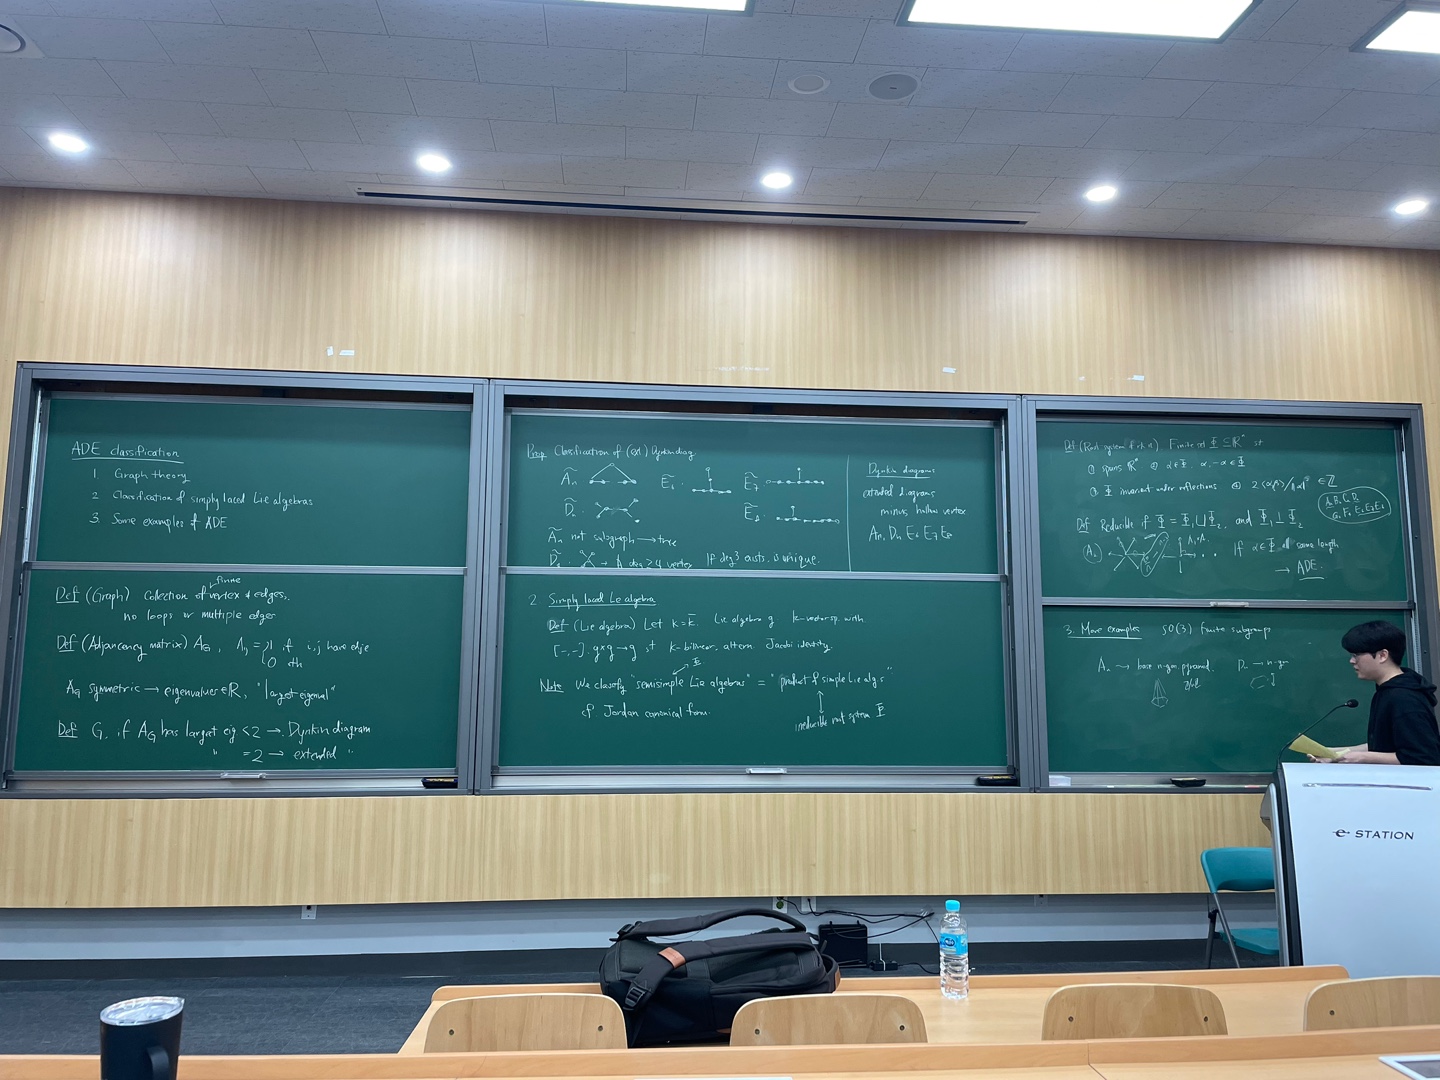 ADE classification
1. Graph theory
2. Classification of simply laced Lie algebras
3. Some examples of ADE
Def (Graph) Collection of vertex & edges.
finite
no loops or multiple edges
Def (Adjancency matrix) A_G, A_ij = { 1 if i, j have edge
0 oth
A_G symmetric → eigenvalues ∈ ℝ, "largest eigenval"
Def G, if A_G has largest eig < 2 → Dynkin diagram
" = 2 → extended "
Prop Classification of (ext) Dynkin diag.
Ã_n
Ẽ_6
Ẽ_7
D̃_n
Ẽ_8
Ã_n not subgraph → tree
D̃_4 → A deg ≥ 4 vertex If deg 3 exists, is unique.
Dynkin diagrams
extended diagrams
minus hollow vertex
A_n, D_n, E_6 E_7 E_8
2 Simply laced Lie algebra
Def (Lie algebra) Let k = k̄. Lie algebra g k-vector sp. with
[-,-]: g×g → g st k-bilinear, altern, Jacobi identity.
Note We classify "semisimple Lie algebras" = "product of simple Lie alg.s"
cf Jordan canonical form.
irreducible root system Φ
Def (Root system of rk n) Finite set Φ ⊆ ℝ^n st
① spans ℝ^n ② α ∈ Φ, α, -α ∈ Φ
③ Φ invariant under reflections ④ 2⟨α,β⟩/|α|² ∈ ℤ
Def Reducible if Φ = Φ_1 ⊔ Φ_2, and Φ_1 ⊥ Φ_2
If α ∈ Φ all same length
→ ADE.
3. More examples SO(3) finite subgroups
A_n → base n-gon pyramid.
D_n → n-gon
e-STATION